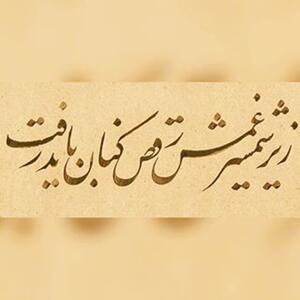 زیر شمشیر غمش رقص کنان باید رفت